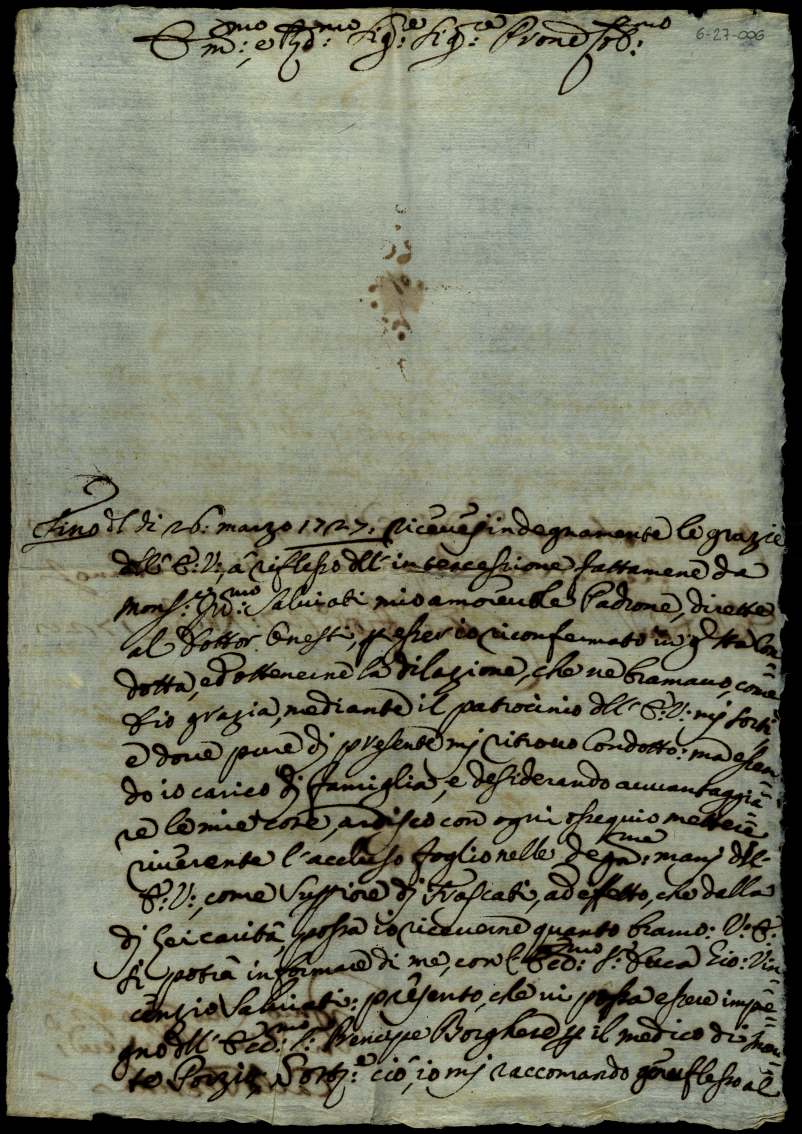 Em:mo, e Rd:mo Sig:re Sig:re Prone Col:mo
6-27-006
Fino dl di 26: marzo 1727. ricevei indegnamente le grazie
dll' E:V:, a riflesso dll' intercessione fattamene da
Mons: Ill:mo Salviati mio amorevole Padrone, dirette
al Dottor Onesti, p esser io riconfermato in q:sta Con-
dotta, ed ottenerne la dilazione, che ne bramavo, come
Dio grazia, mediante il patrocinio dll' E:V: mj sortì
e dove pure dj presente mj ritrovo Condotto: ma essen-
do io carico dj famiglia, e desiderando avvantaggia-
re le mie cose, ardisco con ogni ossequio mettere
riverente l'accluso foglio nelle degn:me manj dll'
E:V:, come Suppiore dj Frascati, ad effetto, che dalla
dj Lei carità, possa io riceverne quanto bramo: V:E:
si potrà informare di me, con l'Ecc:mo S:r Duca Gio: Vin-
cenzio Salviati: presento, che vi possa essere impe-
gno dll' Ecc:mo S:r Prencipe Borghese p il medico di Mon-
te Porzio, Sort:e ciò, io mj raccomando riflesso al